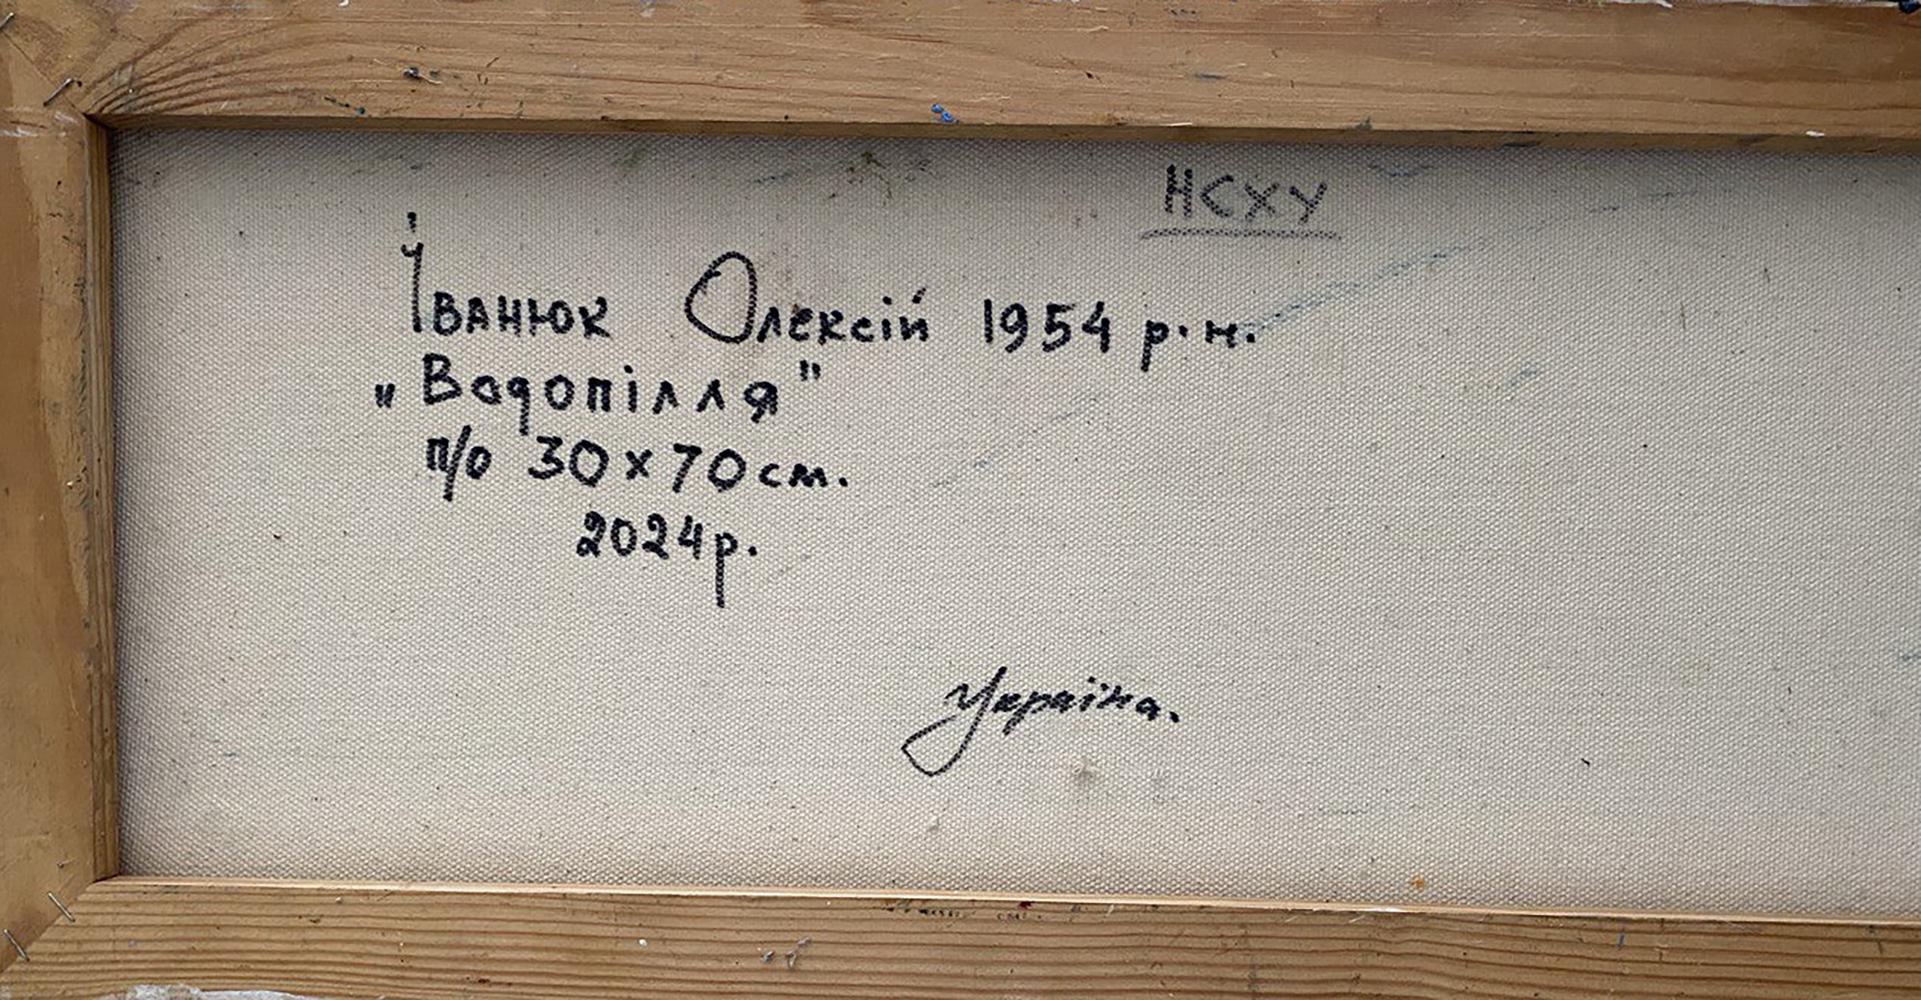 НСХУ
Іванюк Олексій 1954 р.н.
„Водопілля"
п/о 30х70см.
2024р.
Україна.